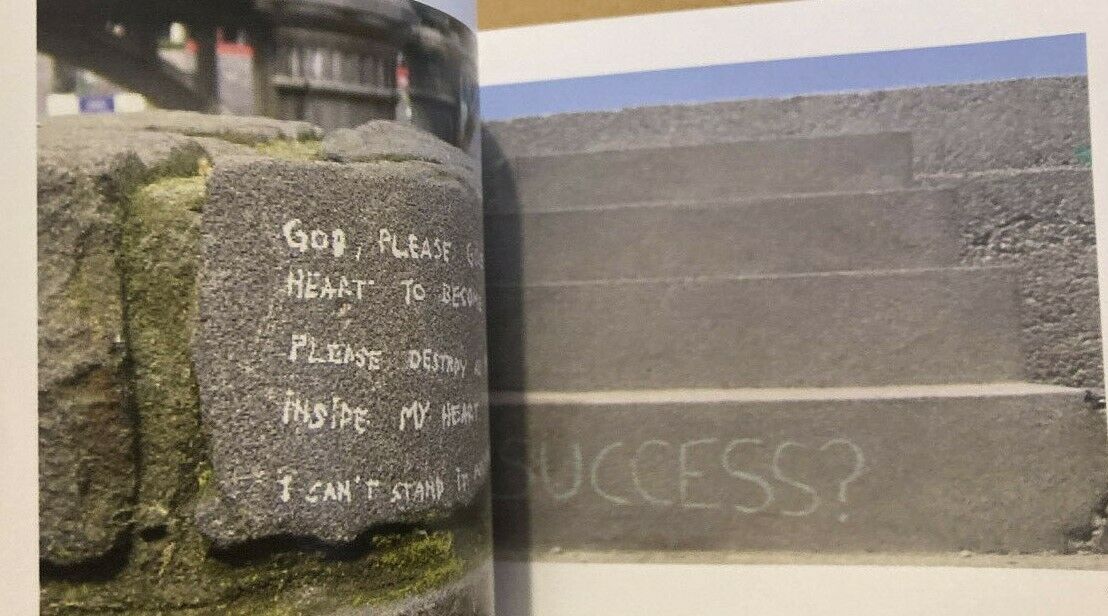 GOD, PLEASE
HEART TO
PLEASE DESTROY
INSIDE MY HEART
I CAN'T STAND IT
SUCCESS?